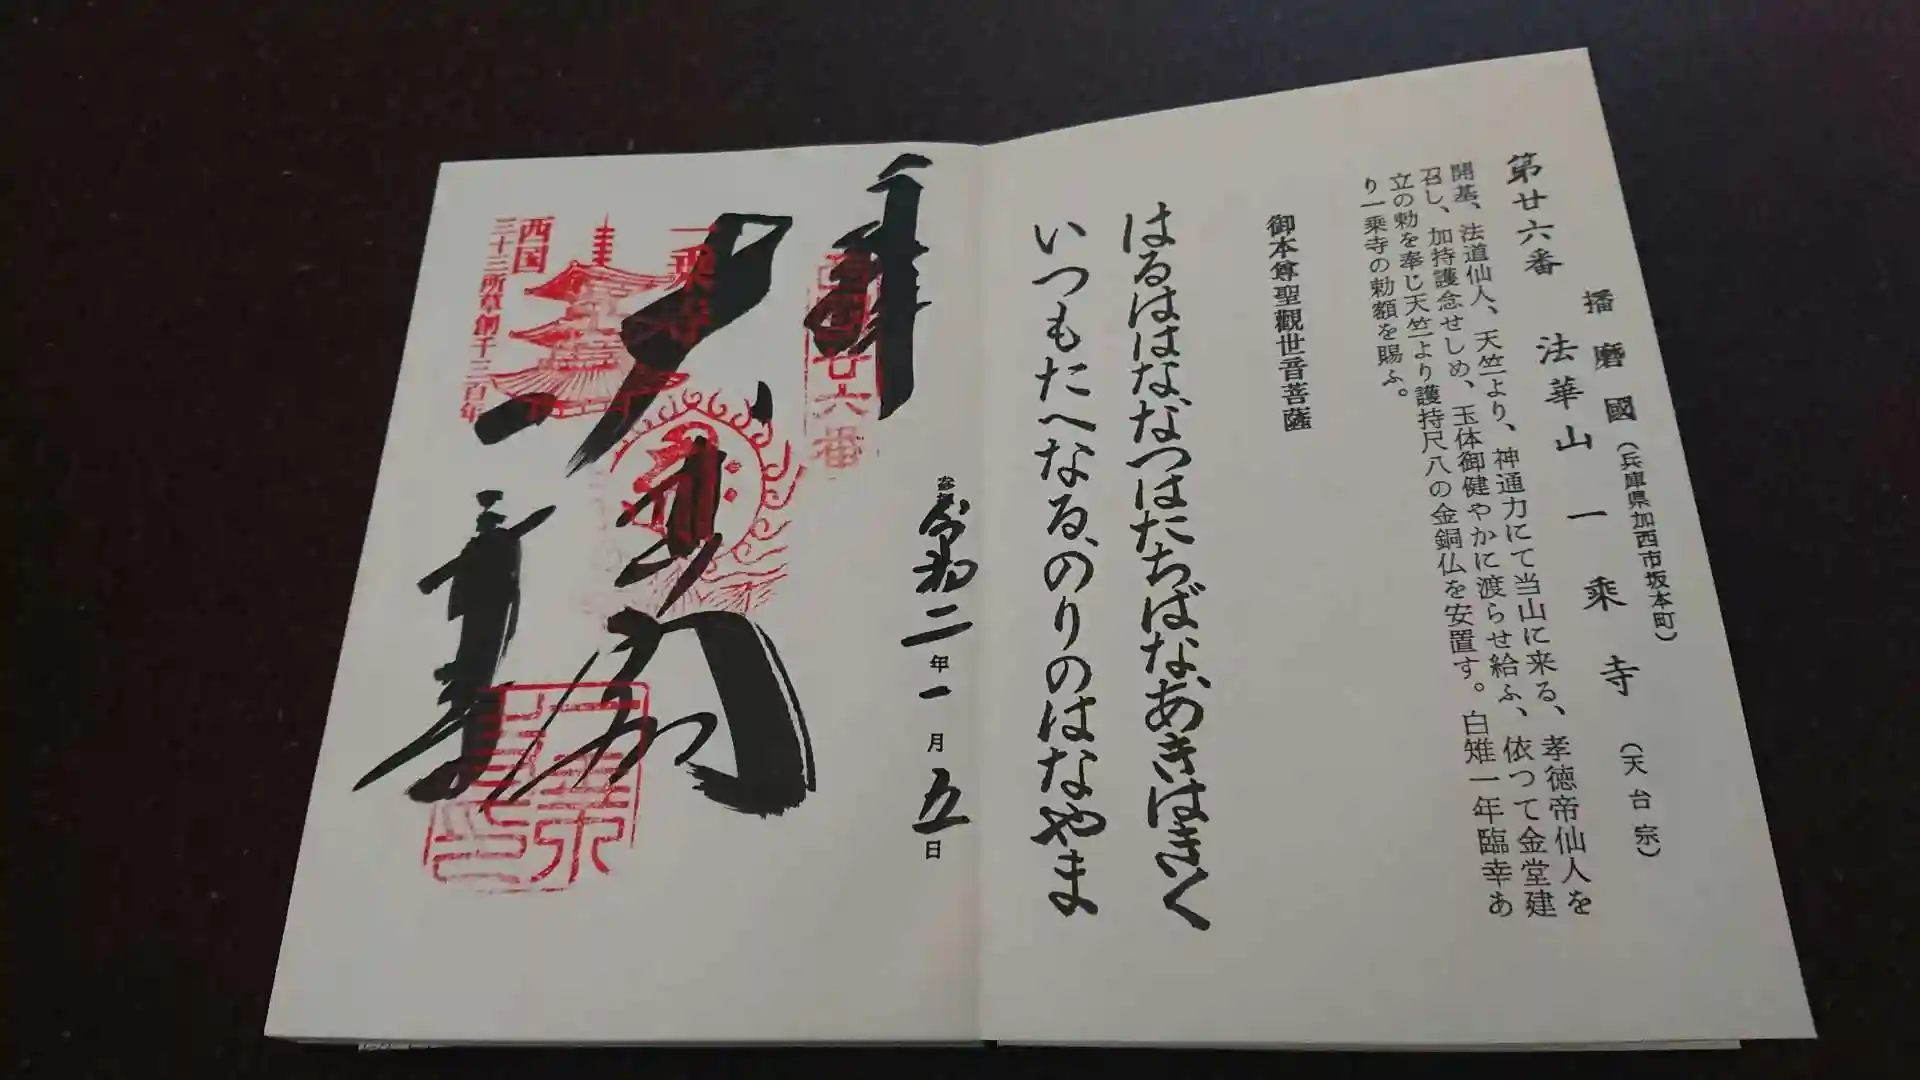 播磨國(兵庫県加西市坂本町)
第廿六番 法華山一乗寺(天台宗)
開基、法道仙人、天竺より、神通力にて当山に来る、孝徳帝仙人を
召し、加持護念せしめ、玉体御健やかに渡らせ給ふ、依つて金堂建
立の勅を奉じ天竺より護持尺八の金銅仏を安置す。白雉一年臨幸あ
り一乗寺の勅額を賜ふ。
御本尊聖觀世音菩薩
はるははな、なつはたちばな、あきはきく
いつもたへなる、のりのはなやま
令和二年一月五日
西国廿六番
一乗寺
西国
三十三所草創千三百年